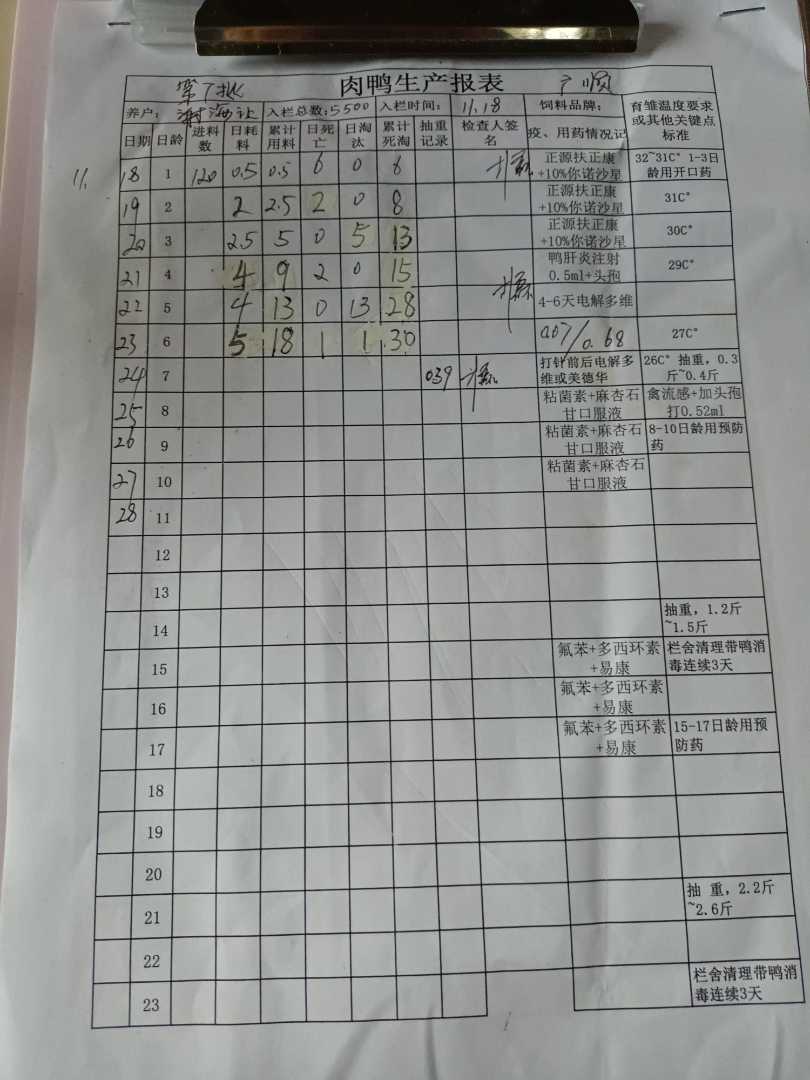 第7批 肉鸭生产报表 广顺
养户: 谢海让 入栏总数:5500 入栏时间: 11.18 饲料品牌: 育雏温度要求或其他关键点标准
日期 日龄 进料数 日耗料 累计用料 日死亡 日淘汰 累计死淘 抽重记录 检查人签名 疫、用药情况记
11. 18 1 120 0.5 0.5 6 0 6 正源扶正康+10%你诺沙星 32~31C° 1-3日龄用开口药
19 2 2 2.5 2 0 8 正源扶正康+10%你诺沙星 31C°
20 3 2.5 5 0 5 13 正源扶正康+10%你诺沙星 30C°
21 4 4 9 2 0 15 鸭肝炎注射0.5ml+头孢 29C°
22 5 4 13 0 13 28 4-6天电解多维
23 6 5 18 1 1 30 0.07/0.68 27C°
24 7 039 打针前后电解多维或美德华 26C° 抽重，0.3斤~0.4斤
25 8 粘菌素+麻杏石甘口服液 禽流感+加头孢打0.52ml
26 9 粘菌素+麻杏石甘口服液 8-10日龄用预防药
27 10 粘菌素+麻杏石甘口服液
28 11
12
13
14 抽重，1.2斤~1.5斤
15 氟苯+多西环素+易康 栏舍清理带鸭消毒连续3天
16 氟苯+多西环素+易康
17 氟苯+多西环素+易康 15-17日龄用预防药
18
19
20
21 抽 重，2.2斤~2.6斤
22
23 栏舍清理带鸭消毒连续3天